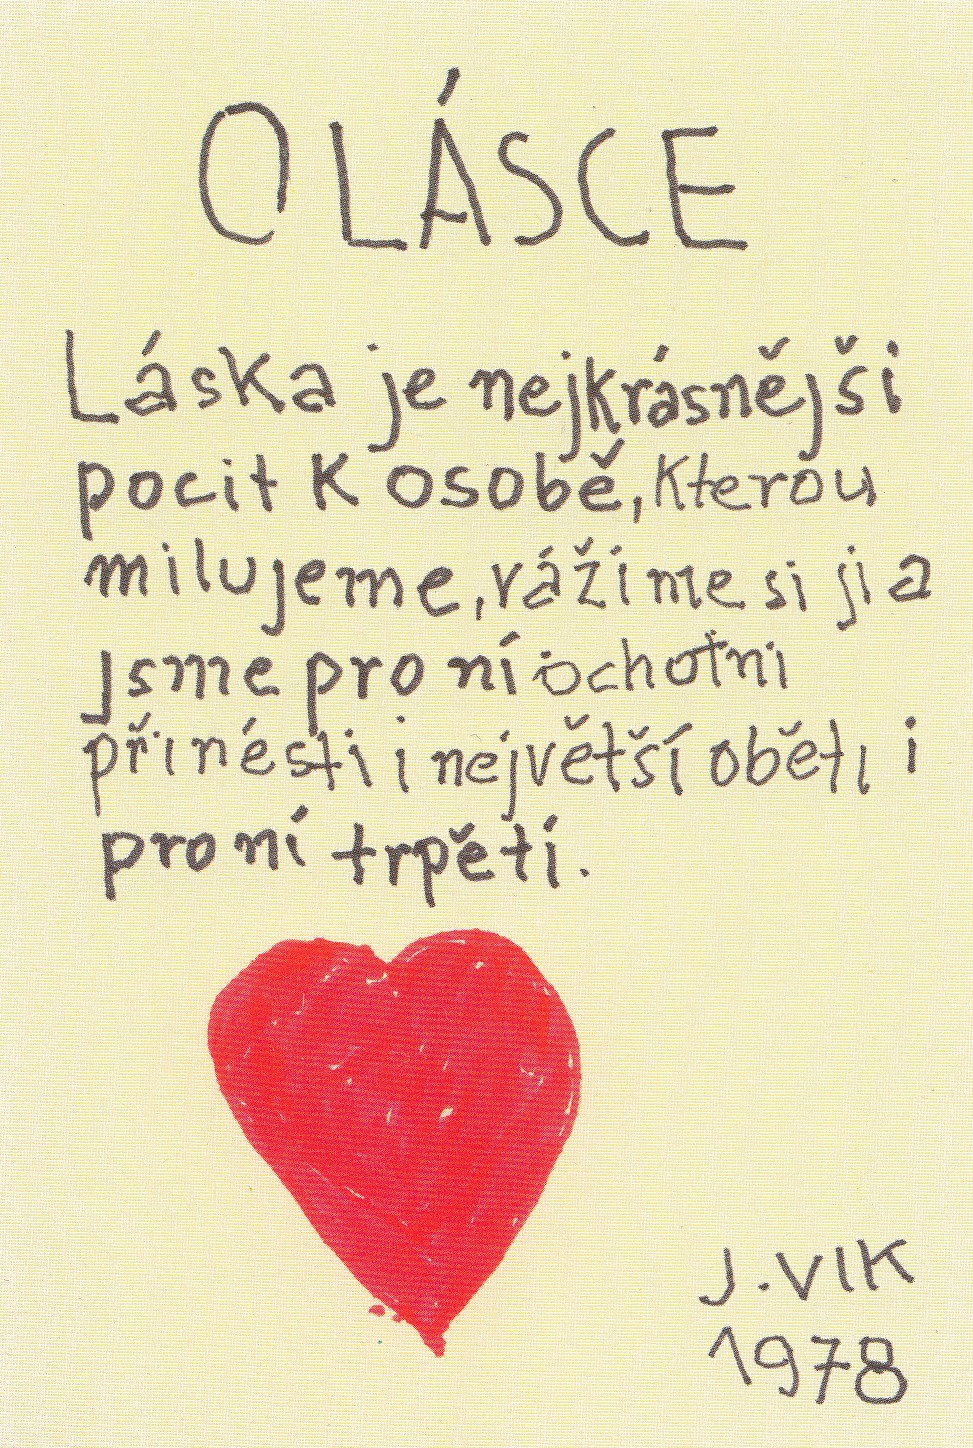 O LÁSCE
Láska je nejkrásnější
pocit k osobě, kterou
milujeme, vážíme si ji a
jsme pro ní ochotni
přinésti i největší oběti i
pro ní trpěti.
J. VIK
1978